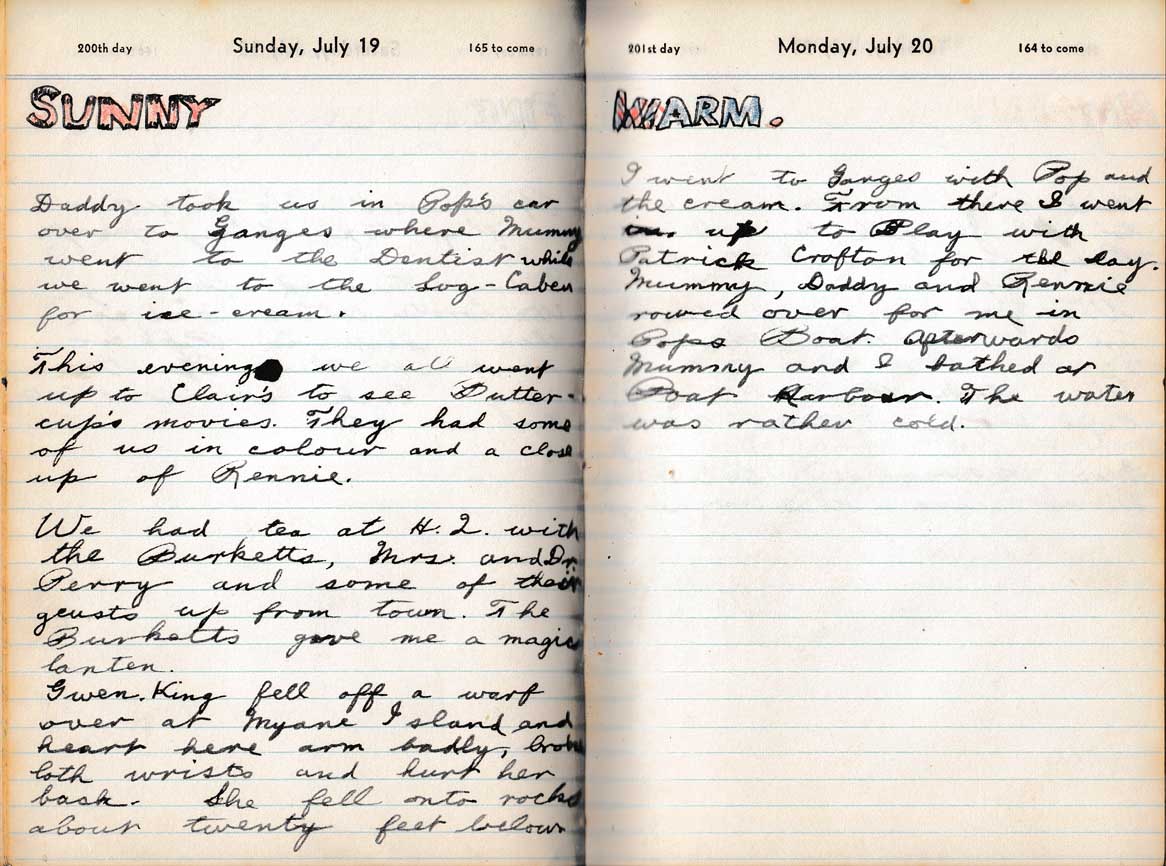 200th day Sunday, July 19 165 to come
SUNNY
Daddy took us in Pop's car
over to Ganges where Mummy
went to the Dentist while
we went to the Log-Caben
for ice-cream.
This evening we all went
up to Clair's to see Butter-
cup's movies. They had some
of us in colour and a close
up of Rennie.
We had tea at H. I. with
the Burketts, Mrs. and Dr.
Perry and some of their
geusts up from town. The
Burketts gave me a magic
lanten.
Gwen. King fell off a warf
over at Myane Island and
heart here arm badly, broke
both wrists and hurt her
back. She fell onto rocks
about twenty feet below
201st day Monday, July 20 164 to come
WARM.
I went to Ganges with Pop and
the cream. From there I went
up to Play with
Patrick Crofton for the day.
Mummy, Daddy and Rennie
rowed over for me in
Pops Boat. Afterwards
Mummy and I bathed at
Boat Harbour. The water
was rather cold.